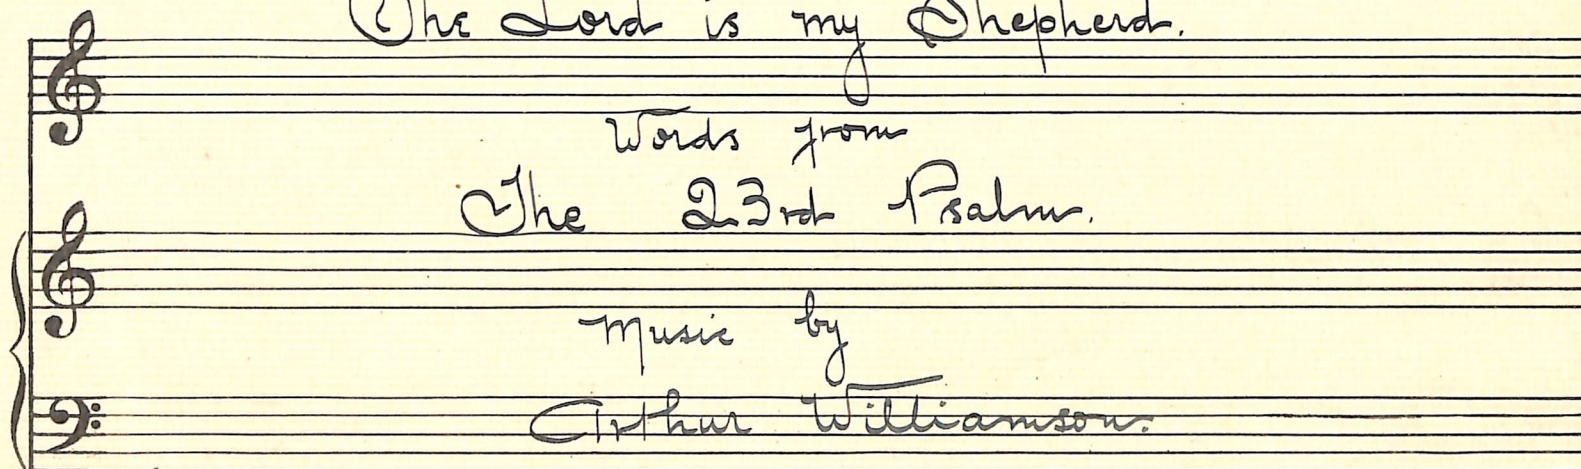 The Lord is my Shepherd.
Words from
The 23rd Psalm.
Music by
Arthur Williamson.